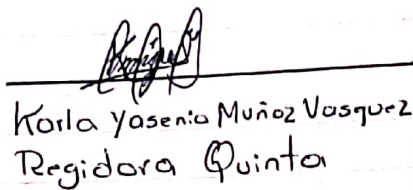 Karla Yasenia Muñoz Vasquez
Regidora Quinta